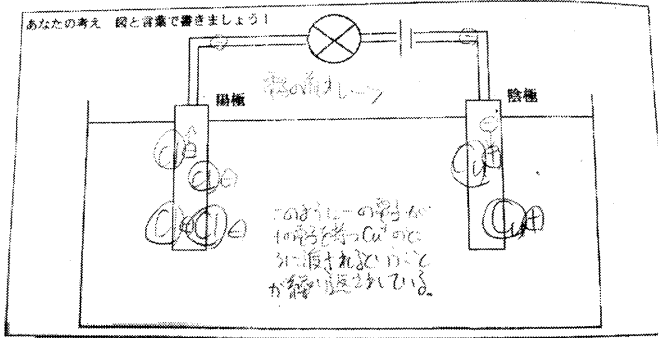 あなたの考え 図と言葉で書きましょう！
陽極
陰極
電子の
Cl
Cl
Cl Cl
Cu +
Cu +
このように－の電子が
+の電子を持つCu⁺のと
ころに渡されるということ
が繰り返されている。